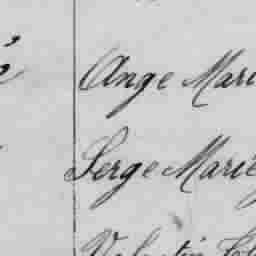 Ange Mari
Serge Marie
Valentin